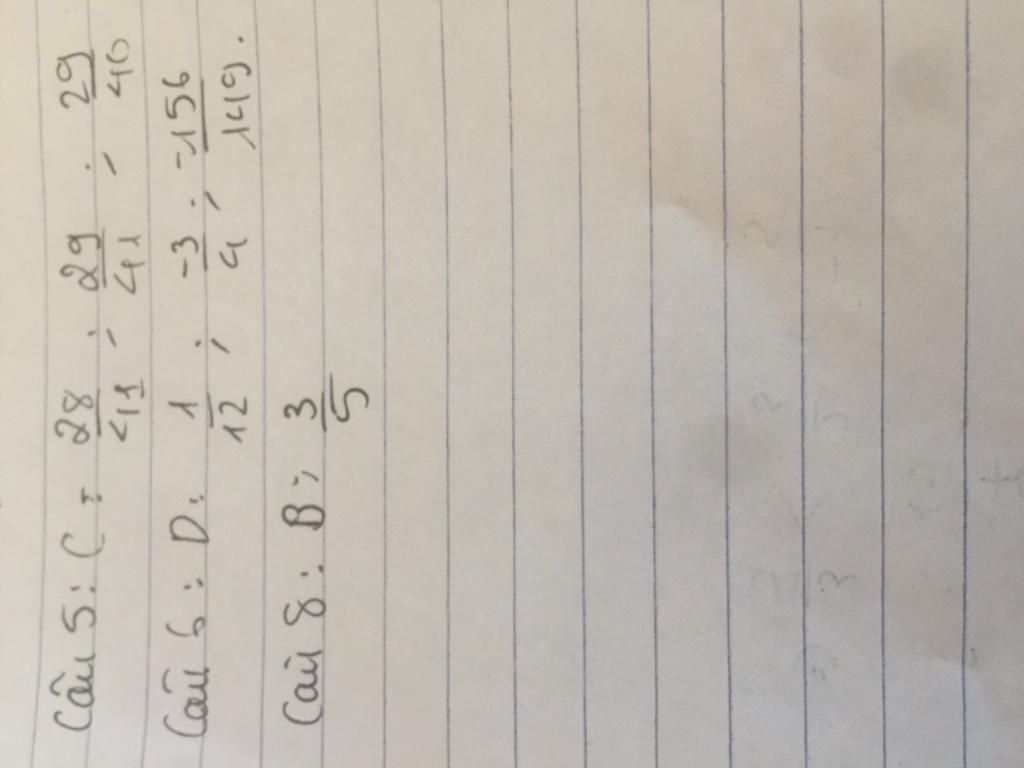 Câu 5: C: 28/41 ; 29/41 ; 29/40
Câu 6: D: 1/12 ; -3/4 ; -156/149.
Câu 8: B: 3/5